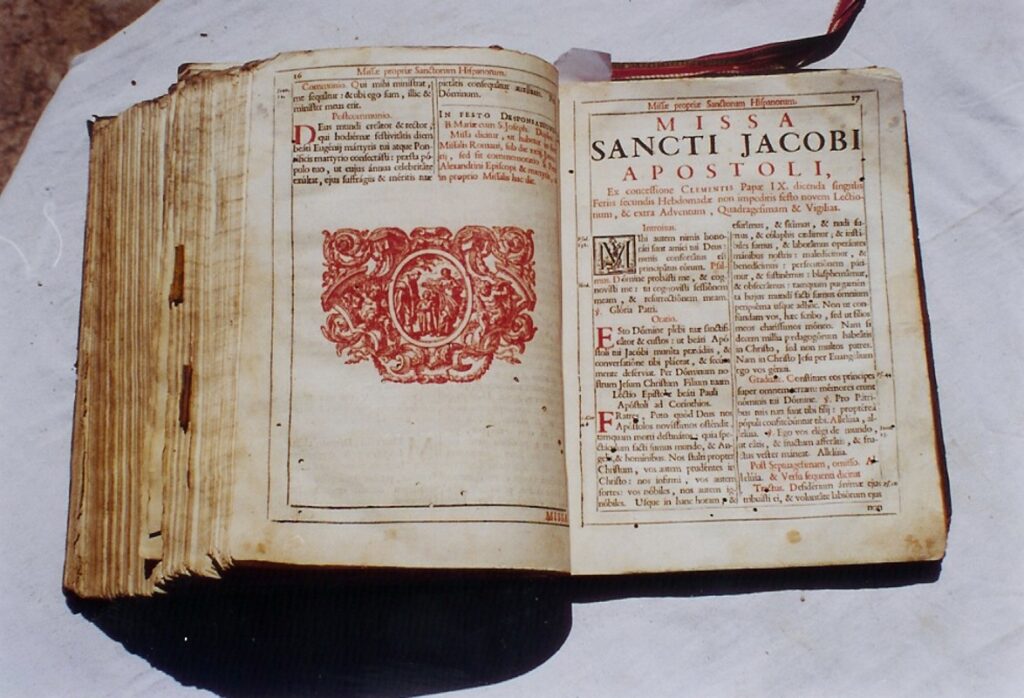 16
Missæ propriæ Sanctorum Hispanorum.
Communio. Qui mihi ministrat,
me sequatur: & ubi ego sum, illic &
minister meus erit.
Postcommunio.
Deus mundi creátor & rector,
qui hodiérnæ festivitátis diem
beáti Eugénij mártyris tui atque Pon-
tíficis martyrio consecrásti: præsta pó-
pulo tuo, ut cujus ánnua celebritáte
exúltat, ejus suffrágiis & méritis tuæ
pietátis consequátur auxílium. Per
Dóminum.
IN FESTO DESPONSATIONIS
B. Mariæ cum S. Joseph.
Missa dicitur, ut habetur in
Missalis Romani, sub die
sed fit commemoratio
Alexandrini Episcopi & martyris,
in proprio Missalis hac die.
MISSA
Missæ propriæ Sanctorum Hispanorum.
17
MISSA
SANCTI JACOBI
APOSTOLI,
Ex concessione CLEMENTIS Papæ IX. dicenda singulis
Feriis secundis Hebdomadæ non impeditis festo novem Lectio-
num, & extra Adventum, Quadragesimam & Vigilias.
Introitus.
Mihi autem nimis hono-
ráti sunt amíci tui Deus:
nimis confortátus est
principátus eórum. Psal-
mus. Dómine probásti me, & cog-
novísti me: tu cognovísti sessiónem
meam, & resurrectiónem meam.
℣. Glória Patri.
Oratio.
Esto Dómine plebi tuæ sanctifi-
cátor & custos: ut beáti Apó-
stoli tui Jacóbi muníta præsídiis, &
conversatióne tibi pláceat, & secúra
mente desérviat. Per Dóminum no-
strum Jesum Christum Fílium tuum
Lectio Epistolæ beati Pauli
Apóstoli ad Corinthios.
Fratres, Puto quod Deus nos
Apóstolos novíssimos osténdit,
tamquam morti destinátos: quia spe-
ctáculum facti sumus mundo, & An-
gelis, & homínibus. Nos stulti propter
Christum, vos autem prudéntes in
Christo: nos infírmi, vos autem
fortes: vos nóbiles, nos autem ig-
nóbiles. Usque in hanc horam, &
esurímus, & sitímus, & nudi su-
mus, & cólaphis cædimur, & instá-
biles sumus, & laborámus operántes
mánibus nostris: maledícimur, &
benedícimus: persecutiónem páti-
mur, & sustinémus: blasphemámur,
& obsecrámus: tamquam purgamén-
ta hujus mundi facti sumus ómnium
peripséma usque adhuc. Non ut con-
fúndam vos, hæc scribo, sed ut fílios
meos charíssimos móneo. Nam si
decem míllia pædagogórum habeátis
in Christo, sed non multos patres.
Nam in Christo Jesu per Evangélium
ego vos génui.
Graduale. Constítues eos príncipes
super omnem terram: mémores erunt
nóminis tui Dómine. ℣. Pro Pátri-
bus tuis nati sunt tibi fílij: proptérea
pópuli confitebúntur tibi. Allelúia, al-
lelúia. ℣. Ego vos elégi de mundo,
ut eátis, & fructum afferátis, & fru-
ctus vester máneat. Allelúia.
Post Septuagesimam, omisso. Al-
lelúia. & Versu sequenti dicitur
Tractus. Desidérium ánimæ ejus
tribuísti ei, & voluntáte labiórum ejus